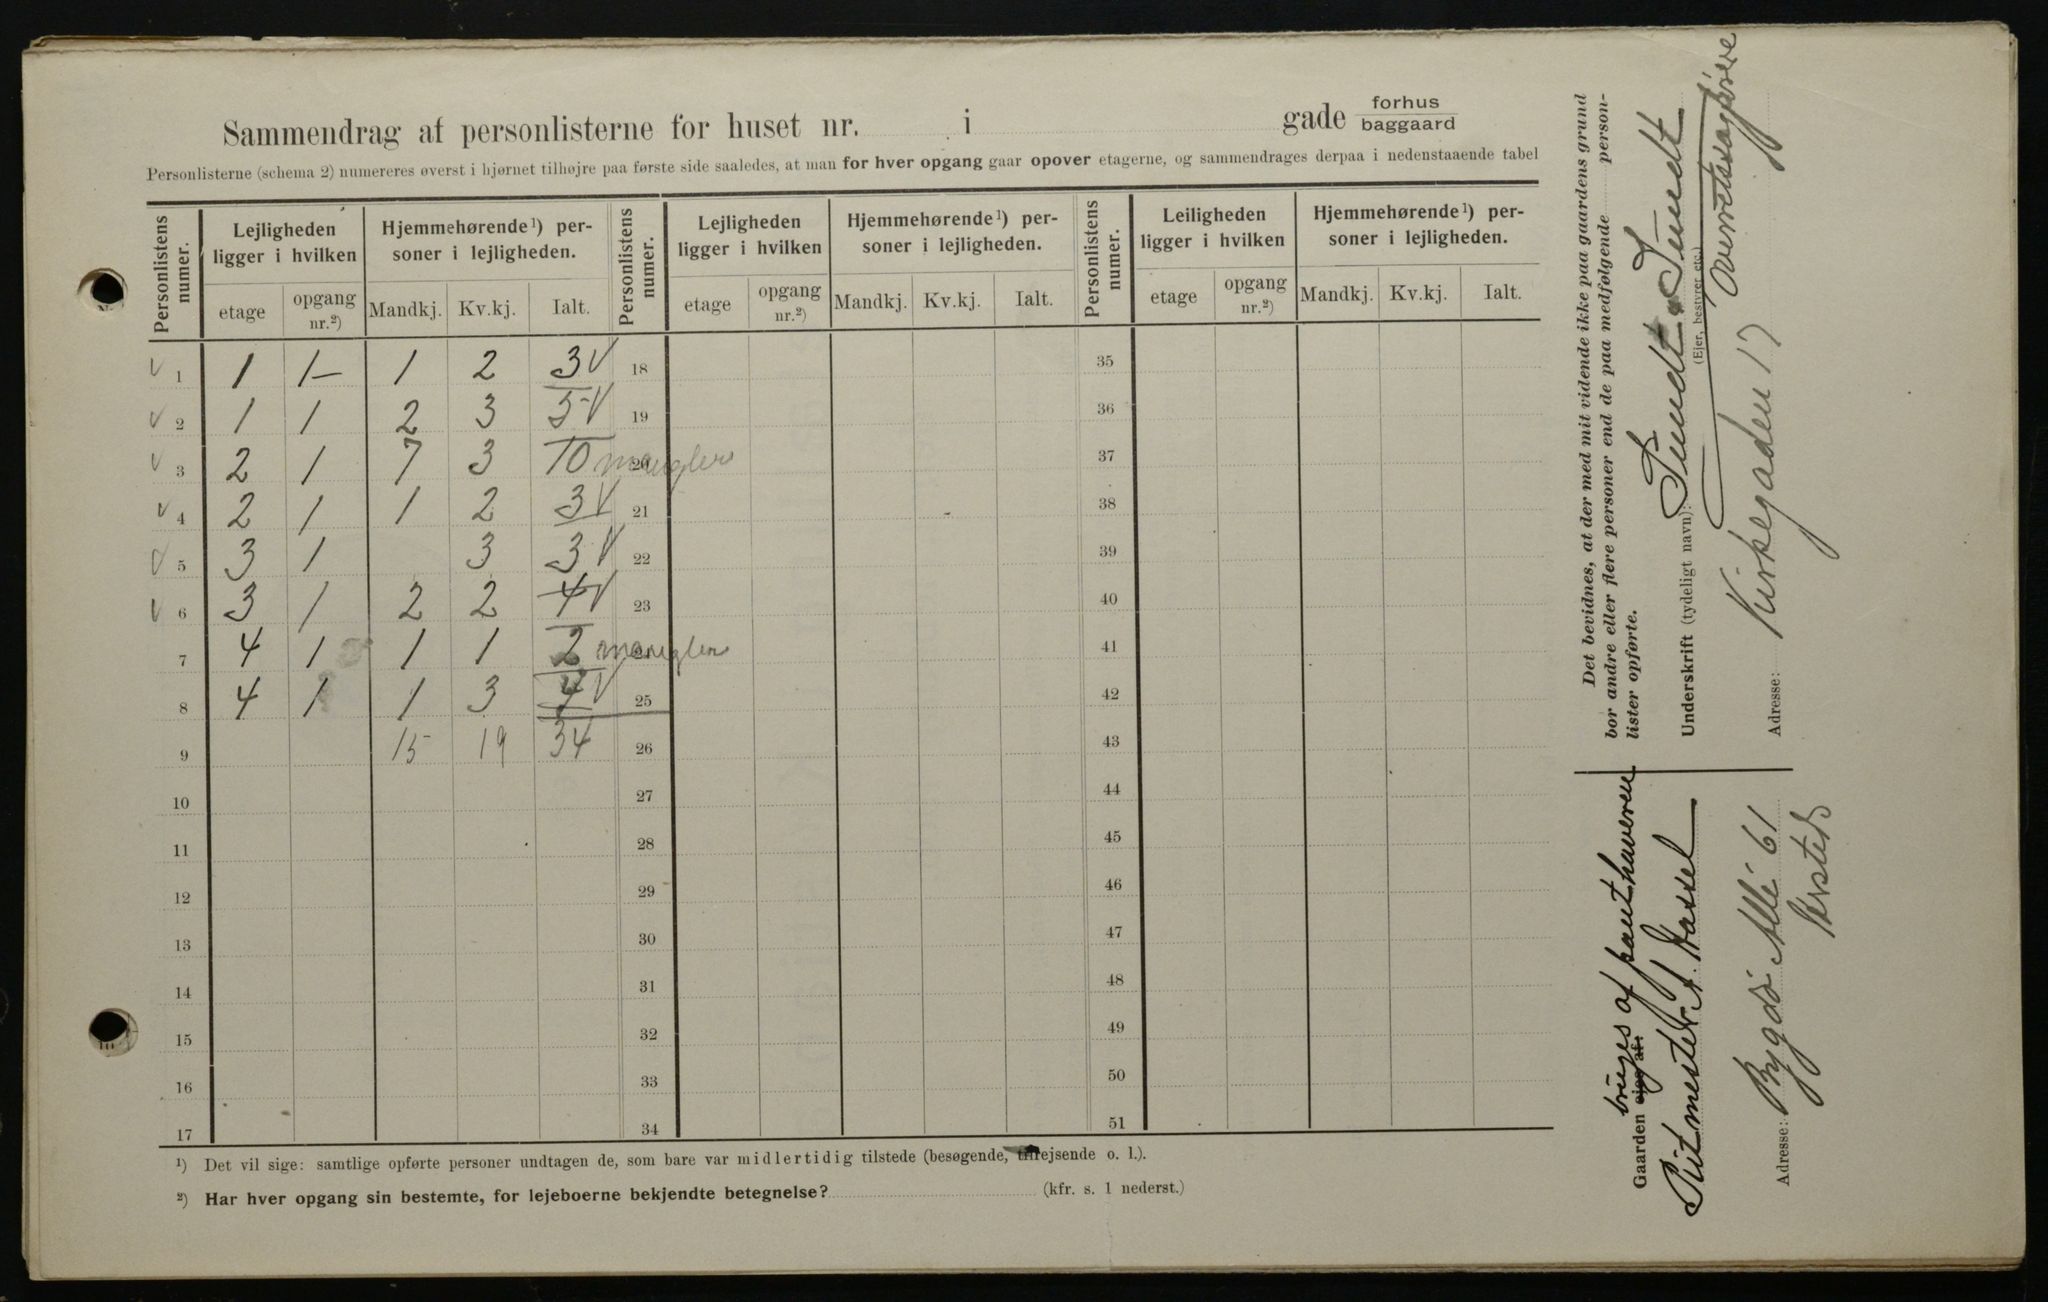 Sammendrag af personlisterne for huset nr. i gade forhus
baggaard
Personlisterne (schema 2) numereres øverst i hjørnet tilhøjre paa første side saaledes, at man for hver opgang gaar opover etagerne, og sammendrages derpaa i nedenstaaende tabel
Personlistens numer. Lejligheden ligger i hvilken Hjemmehørende¹) personer i lejligheden. Personlistens numer. Lejligheden ligger i hvilken Hjemmehørende¹) personer i lejligheden. Personlistens numer. Leiligheden ligger i hvilken Hjemmehørende¹) personer i lejligheden.
etage opgang nr.²) Mandkj. Kv.kj. Ialt. etage opgang nr.²) Mandkj. Kv.kj. Ialt. etage opgang nr.²) Mandkj. Kv.kj. Ialt.
√ 1 1 1– 1 2 3 √ 18 35
√ 2 1 1 2 3 5 √ 19 36
√ 3 2 1 7 3 10 mangler 20 37
√ 4 2 1 1 2 3 √ 21 38
√ 5 3 1 3 3 √ 22 39
√ 6 3 1 2 2 4 √ 23 40
7 4 1 1 1 2 mangler 24 41
8 4 1 1 3 4 √ 25 42
9 15 19 34 26 43
10 27 44
11 28 45
12 29 46
13 30 47
14 31 48
15 32 49
16 33 50
17 34 51
¹) Det vil sige: samtlige opførte personer undtagen de, som bare var midlertidig tilstede (besøgende, tilrejsende o. l.).
²) Har hver opgang sin bestemte, for lejeboerne bekjendte betegnelse? (kfr. s. 1 nederst.)
Det bevidnes, at der med mit vidende ikke paa gaardens grund
bor andre eller flere personer end de paa medfølgende person-
lister opførte.
Underskrift (tydeligt navn): Sundt & Sundt
(Ejer, bestyrer etc.) Overretssagførere
Adresse: Kirkegaden 17
bruges af panthaveren
Gaarden ejes af:
Ritmester A. Hassel
Adresse: Bygdø Allé 61